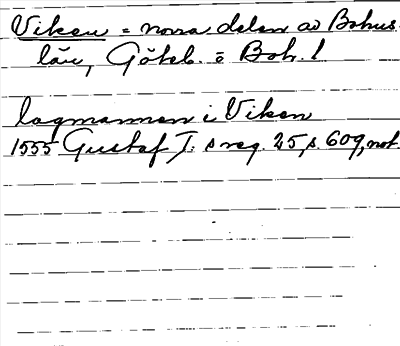 Viken = norra delen av Bohus
län, Göteb. o Boh. l
lagmannen i Viken
1555 Gustaf I:s reg. 25, s. 609, not.